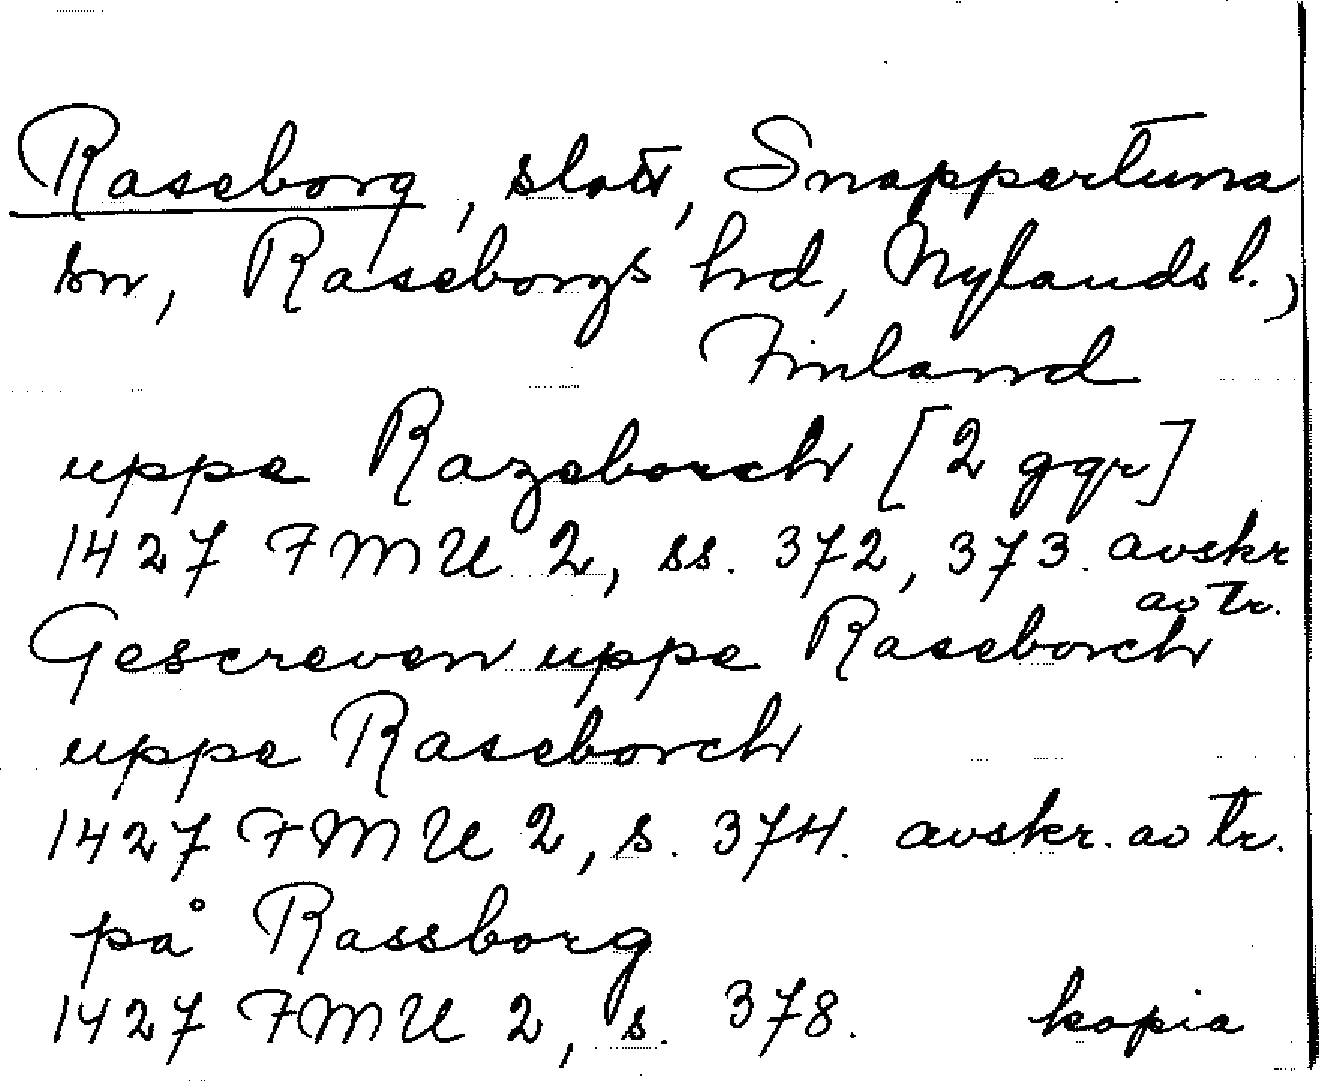 Raseborg, slott, Snappertuna
sn, Raseborgs hrd, Nylands l.,
Finland
uppe Razeborch [2 ggr]
1427 FMU 2, ss. 372, 373. avskr
av tr.
Gescreven uppe Raseborch
uppe Raseborch
1427 FMU 2, s. 374. avskr. av tr.
på Rassborg
1427 FMU 2, s. 378. kopia